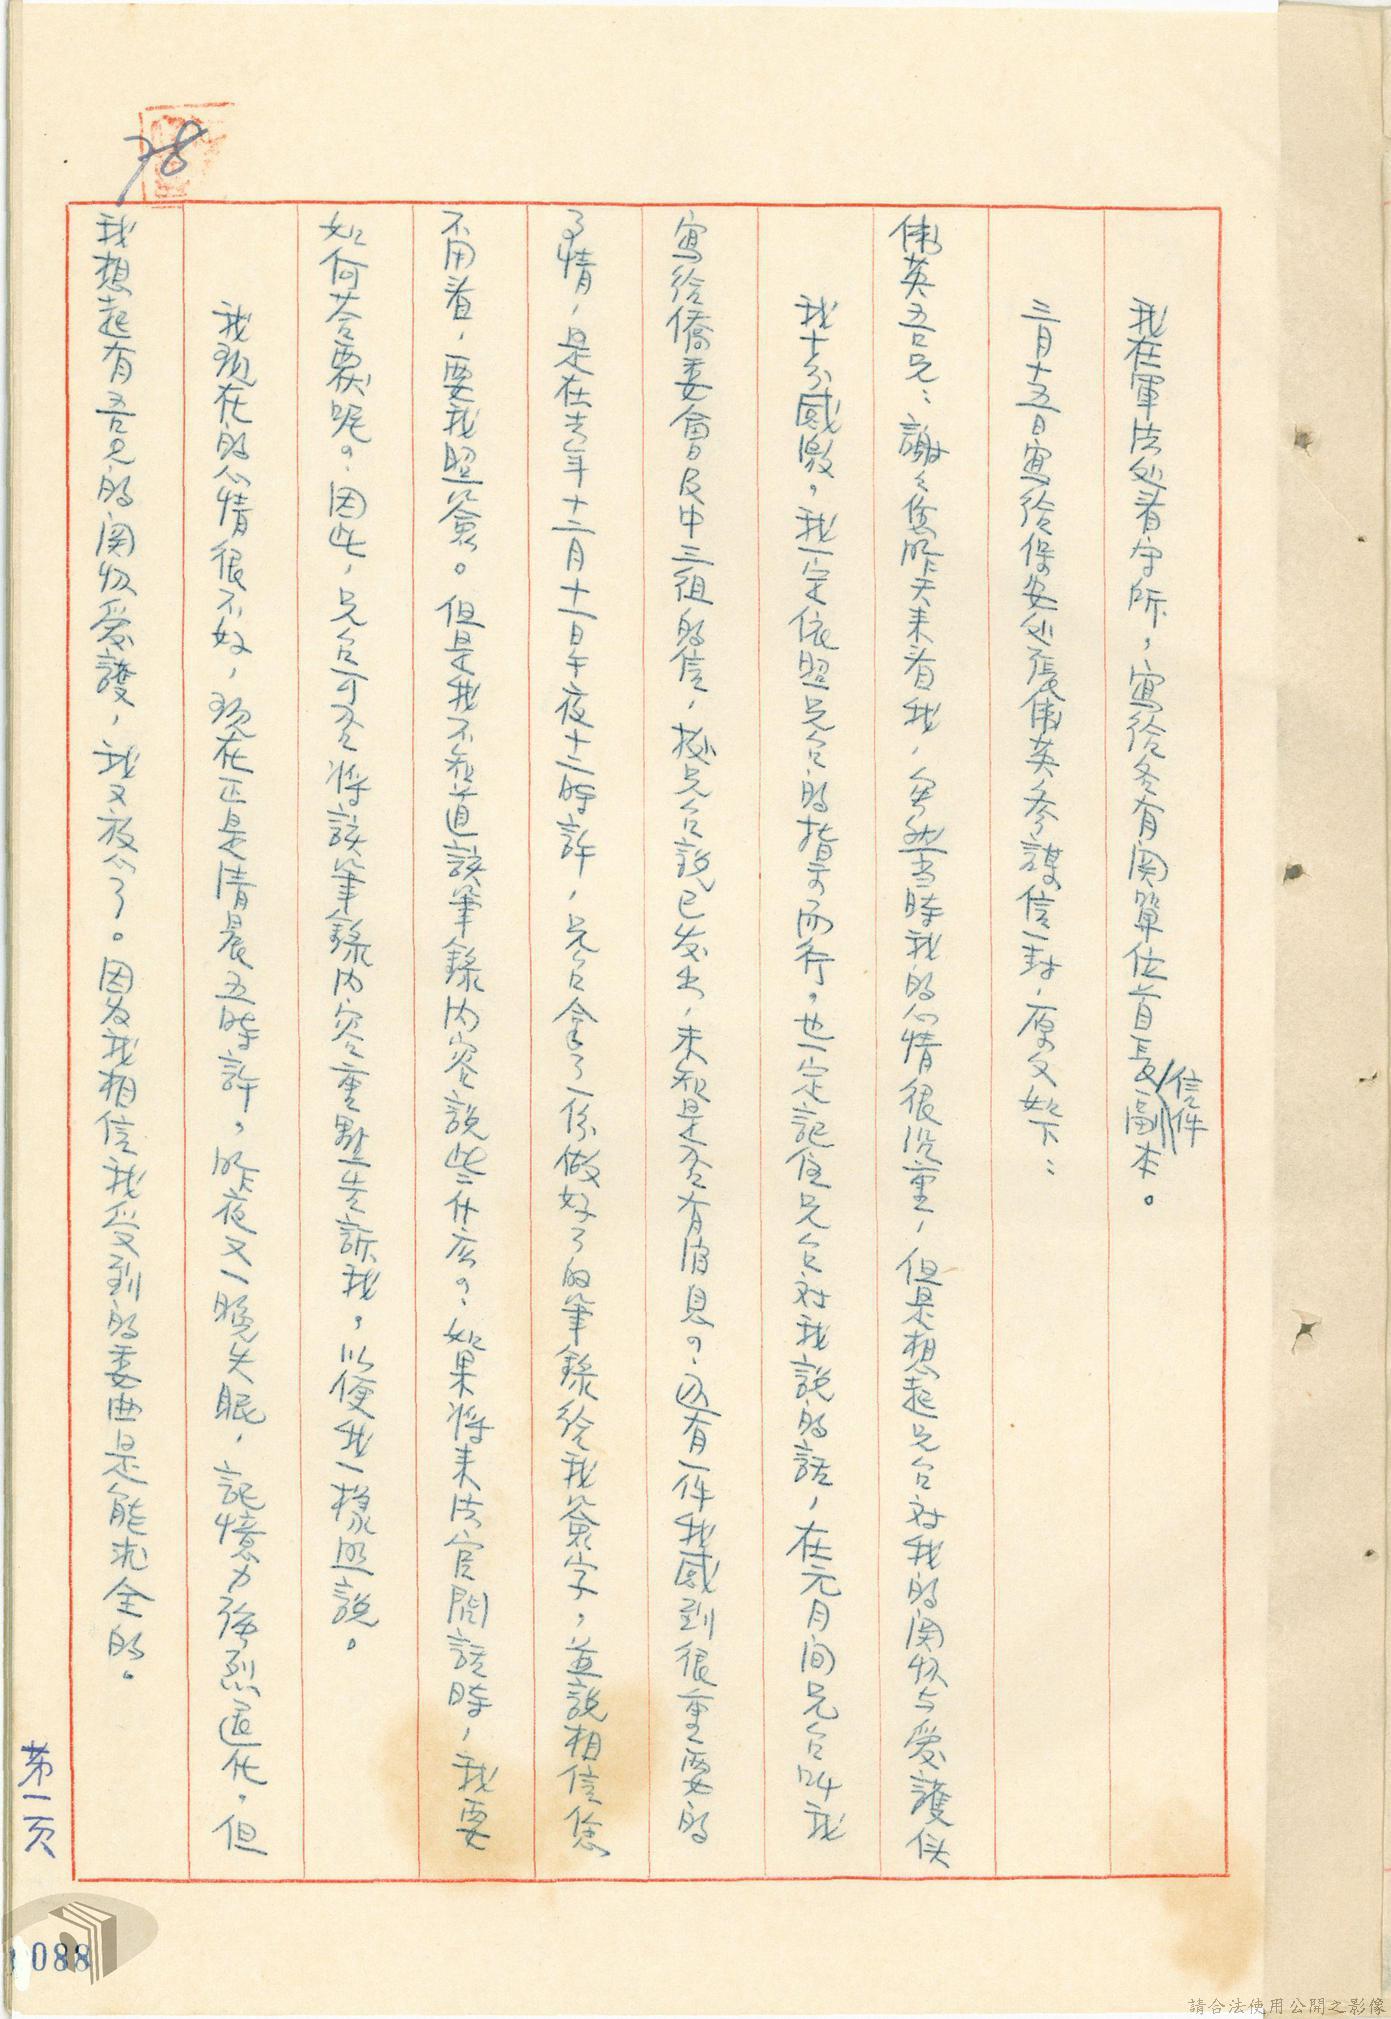 78
我在軍法处看守所，寫給各有関單位首長信件副本。
三月十五日寫給保安处張偉英参謀信一封，原文如下：
偉英吾兄：謝々您昨天来看我，虽然当時我的心情很沉重，但是想起兄台对我的関切与爱護使
我十分感激，我一定依照兄台的指示而行，也一定記住兄台对我説的話，在元月间兄台叫我
寫給僑委會及中三组的信，据兄台説已发出，未知是否有消息？还有一件我感到很重要的
事情，是在去年十二月十一日午夜十二時許，兄台拿了一份做好了的筆錄给我簽字，並説相信您
不用看，要我照簽。但是我不知道該筆錄内容説些什広？如果将来法官問話時，我要
如何答覆呢？因此，兄台可否将該筆錄内容重點告訴我，以便我一様照説。
我現在的心情很不好，現在正是清晨五時許，昨夜又一晚失眠，記憶力強烈退化，但
我想起有吾兄的関切爱護，我又放心了。因为我相信我受到的委曲是能求全的。
第一页
088
請合法使用公開之影像